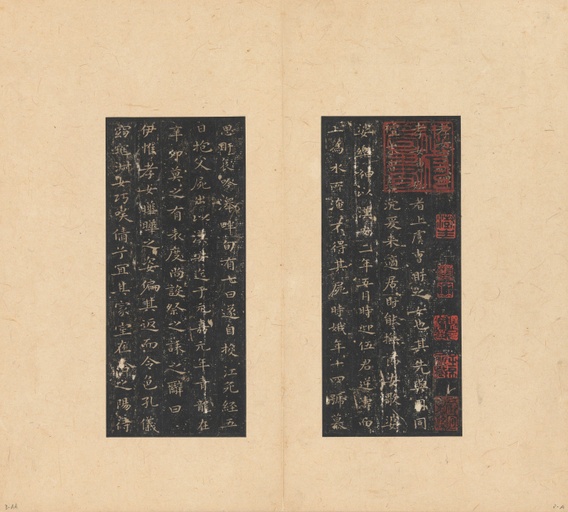 孝女曹娥碑
孝女曹娥者上虞曹盱之女也其先與周同
祖末胄荒沉爰來適居盱能撫節安歌婆
娑樂神以漢安二年五月時迎伍君逆濤而
上為水所淹不得其屍時娥年十四號慕
思盱哀吟澤畔旬有七日遂自投江死經五
日抱父屍出以漢安迄于元嘉元年青龍在
辛卯莫之有表度尚設祭之誄之辭曰
伊惟孝女曄曄之姿偏其返而令色孔儀
窈窕淑女巧笑倩兮宜其家室在洽之陽待